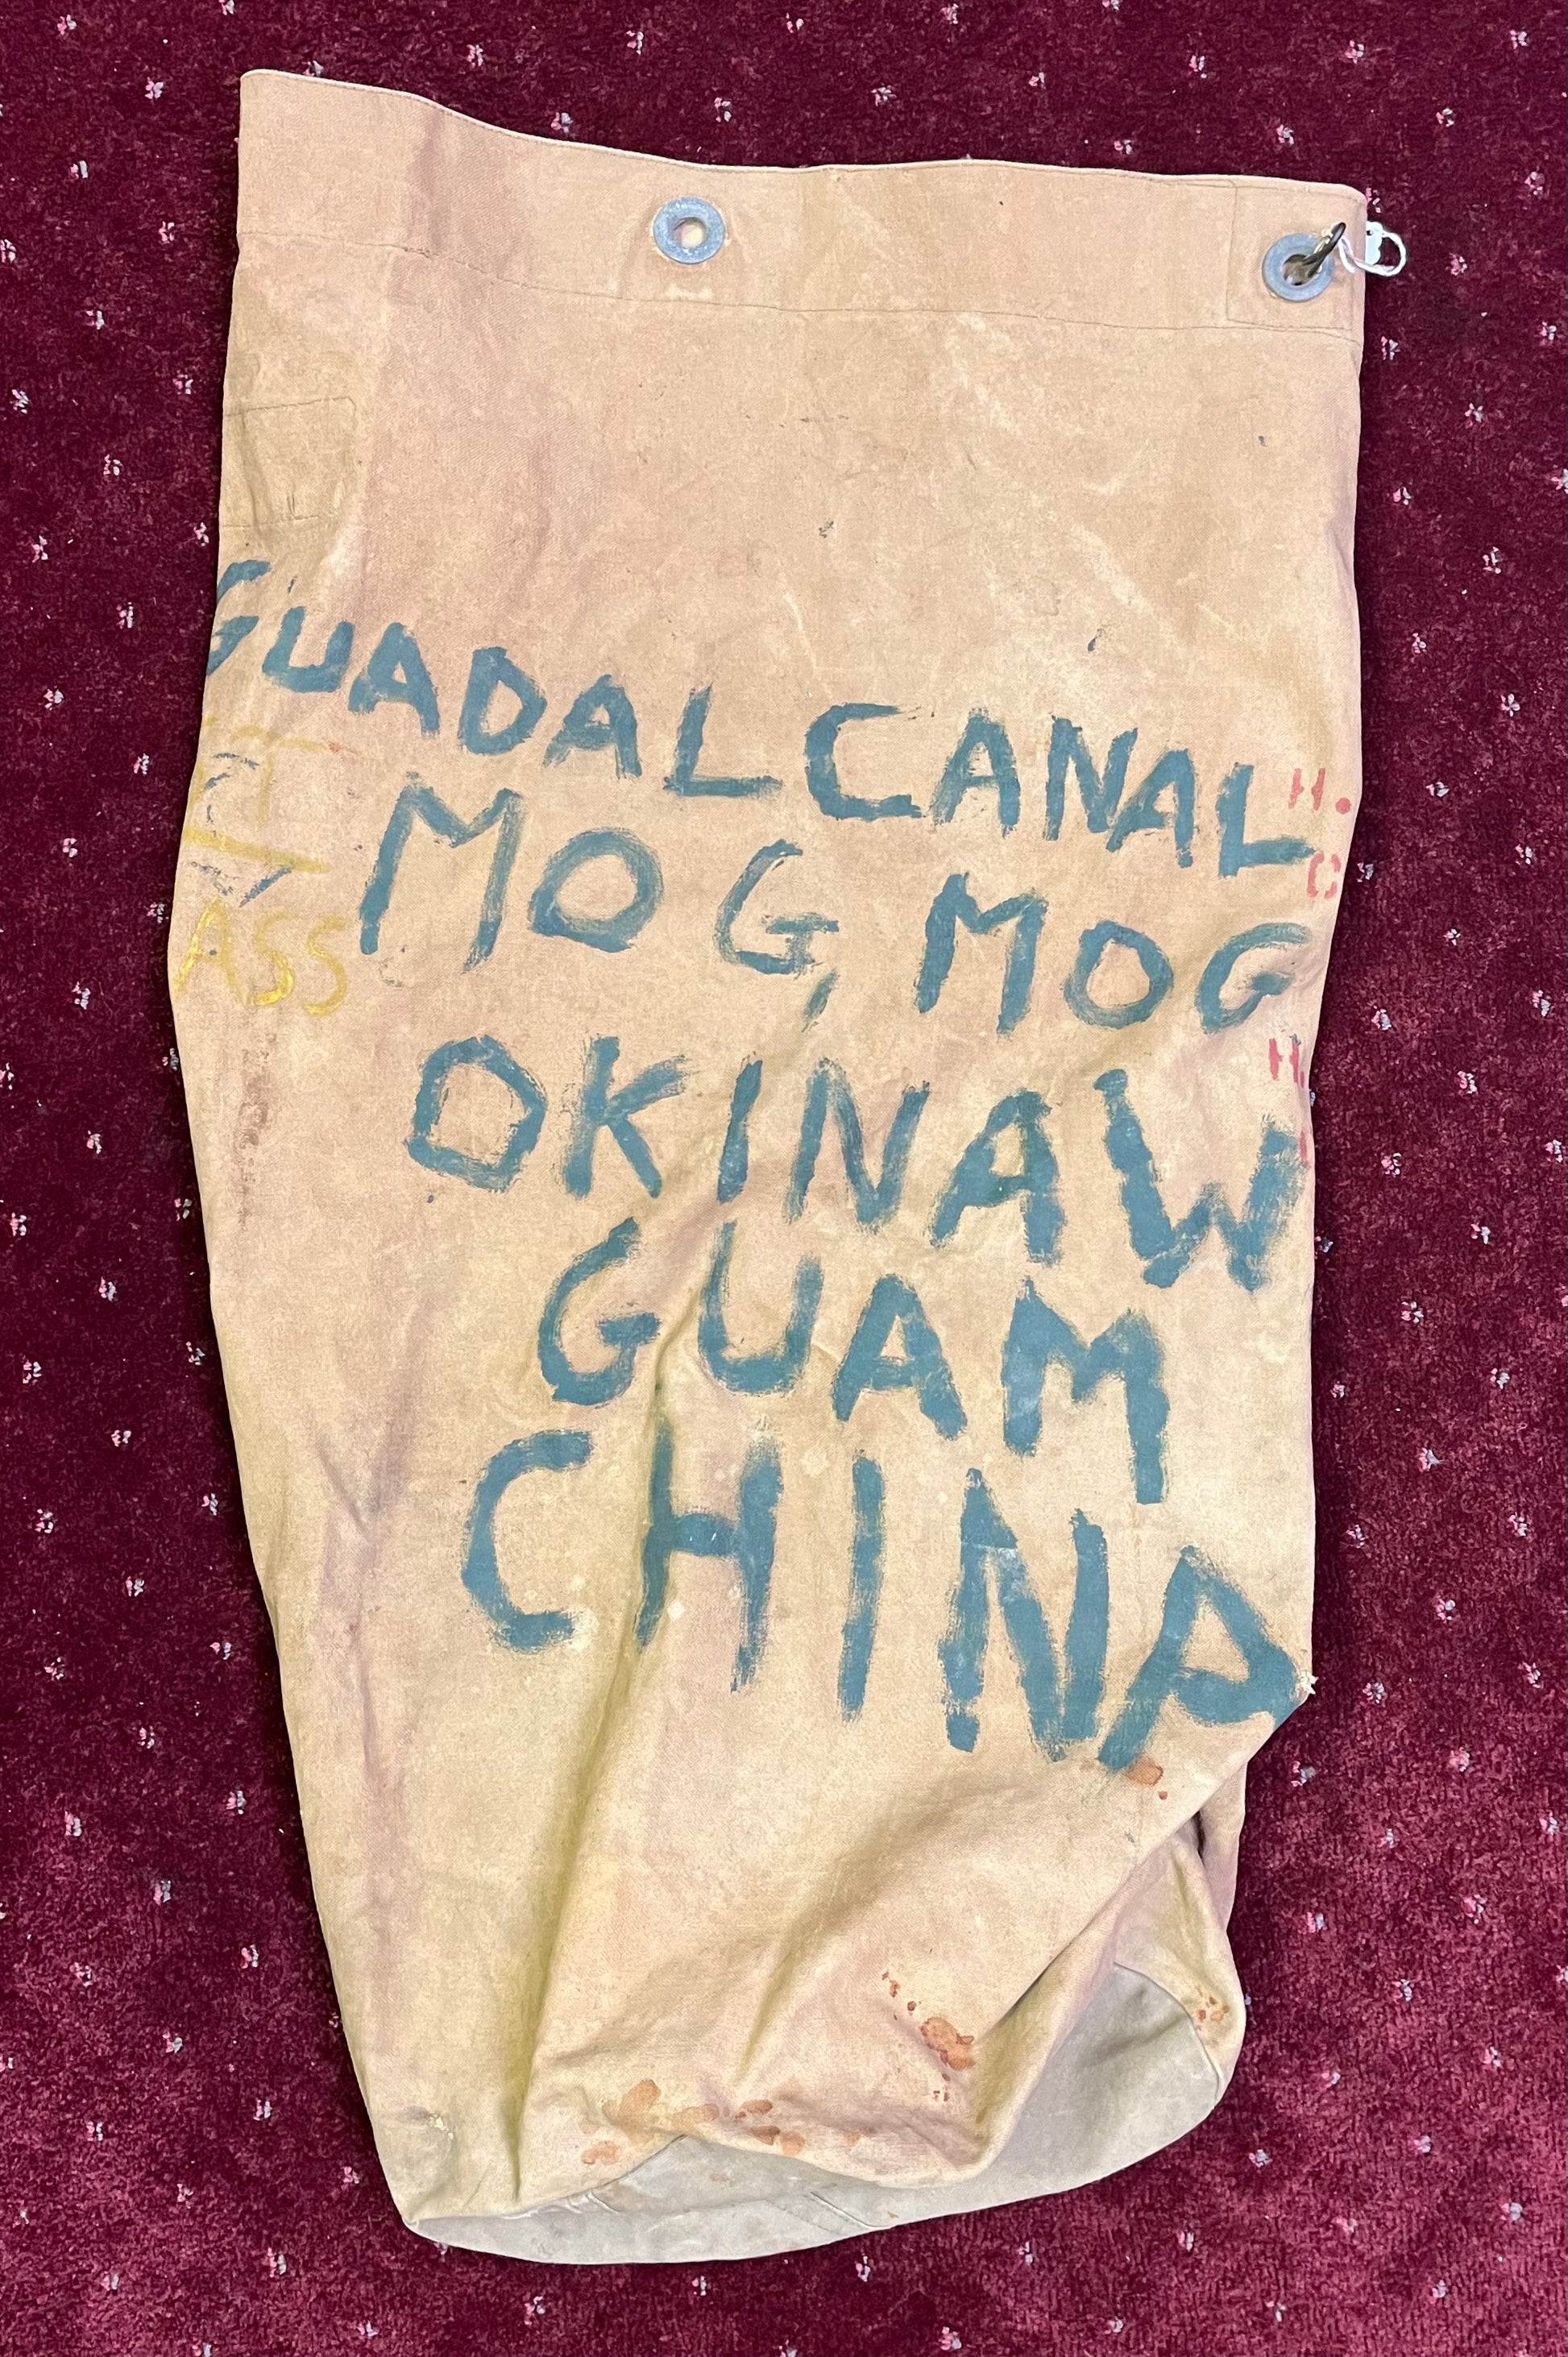 GUADALCANAL
MOG, MOG
OKINAW
GUAM
CHINA
ASS
H.
C
H.